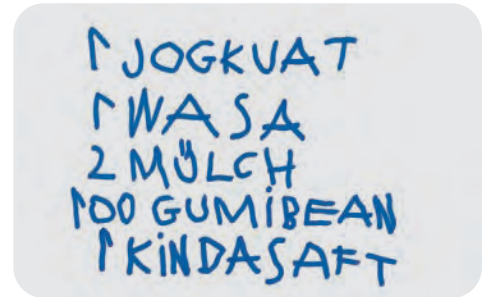 1 JOGKUAT
1 WASA
2 MÜLCH
100 GUMiBEAN
1 KiNDASAFT